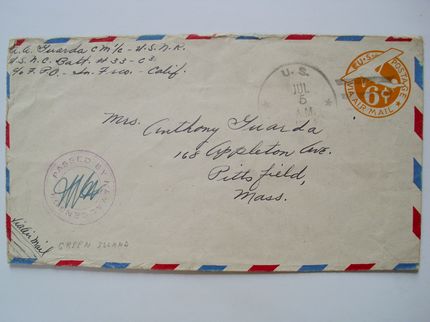 A.A. Guarda CM1/c - U.S.N.R.
U.S.N.C. Batt. #33 - C3
c/o F.P.O. - San. Fran. - Calif.
U.S.
JUL
5
A.M.
U.S. POSTAGE
6¢
VIA AIR MAIL
Mrs. Anthony Guarda
168 Appleton Ave.
Pittsfield,
Mass.
PASSED BY NAVAL CENSOR
Via air mail
GREEN ISLAND